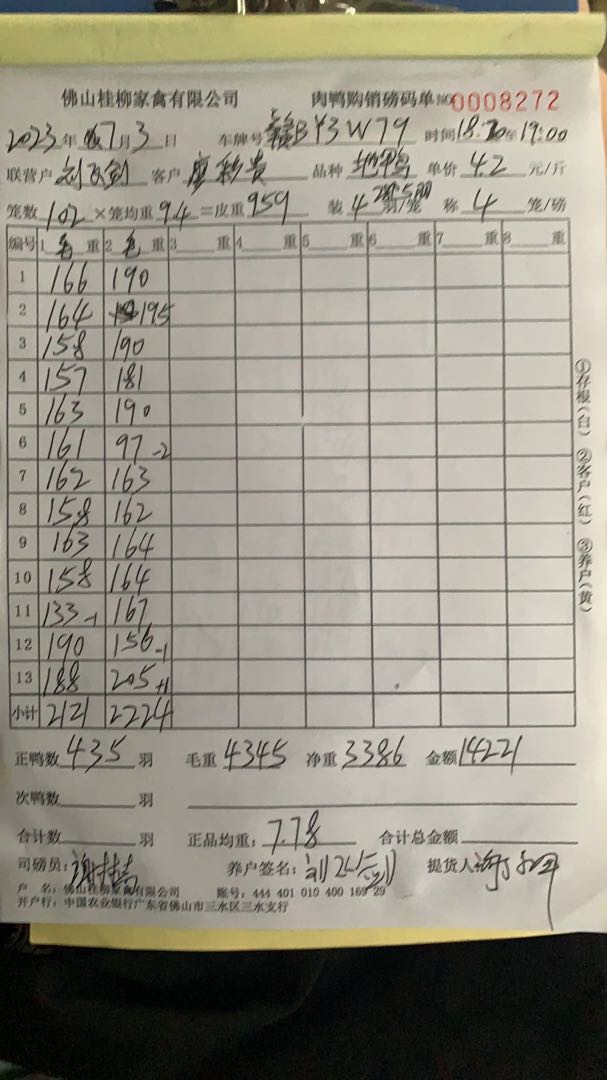 佛山桂柳家禽有限公司 肉鸭购销磅码单 NO 0008272
2023年 7月3日 车牌号 赣BY3W79 时间 18:20至19:00
联营户 客户 廖彩贵 品种 地鸭 单价 4.2 元/斤
笼数 102 ×笼均重 9.4 =皮重 959 装 4 羽/笼 称 4 笼/磅
编号 1 毛 重 2 毛 重 3 重 4 重 5 重 6 重 7 重 8 重
1 166 190
2 164 195
3 158 190
4 157 181
5 163 190
6 161 97 -2
7 162 163
8 158 162
9 163 164
10 158 164
11 133 -1 167
12 190 156 -1
13 188 205 +1
小计 2121 2224
正鸭数 435 羽 毛重 4345 净重 3386 金额 14221
次鸭数 羽
合计数 羽 正品均重: 7.78 合计总金额
司磅员: 养户签名: 提货人:
户 名: 佛山桂柳家禽有限公司 账号: 444 401 010 400 169 29
开户行: 中国农业银行广东省佛山市三水区三水支行
①存根(白) ②客户(红) ③养户(黄)